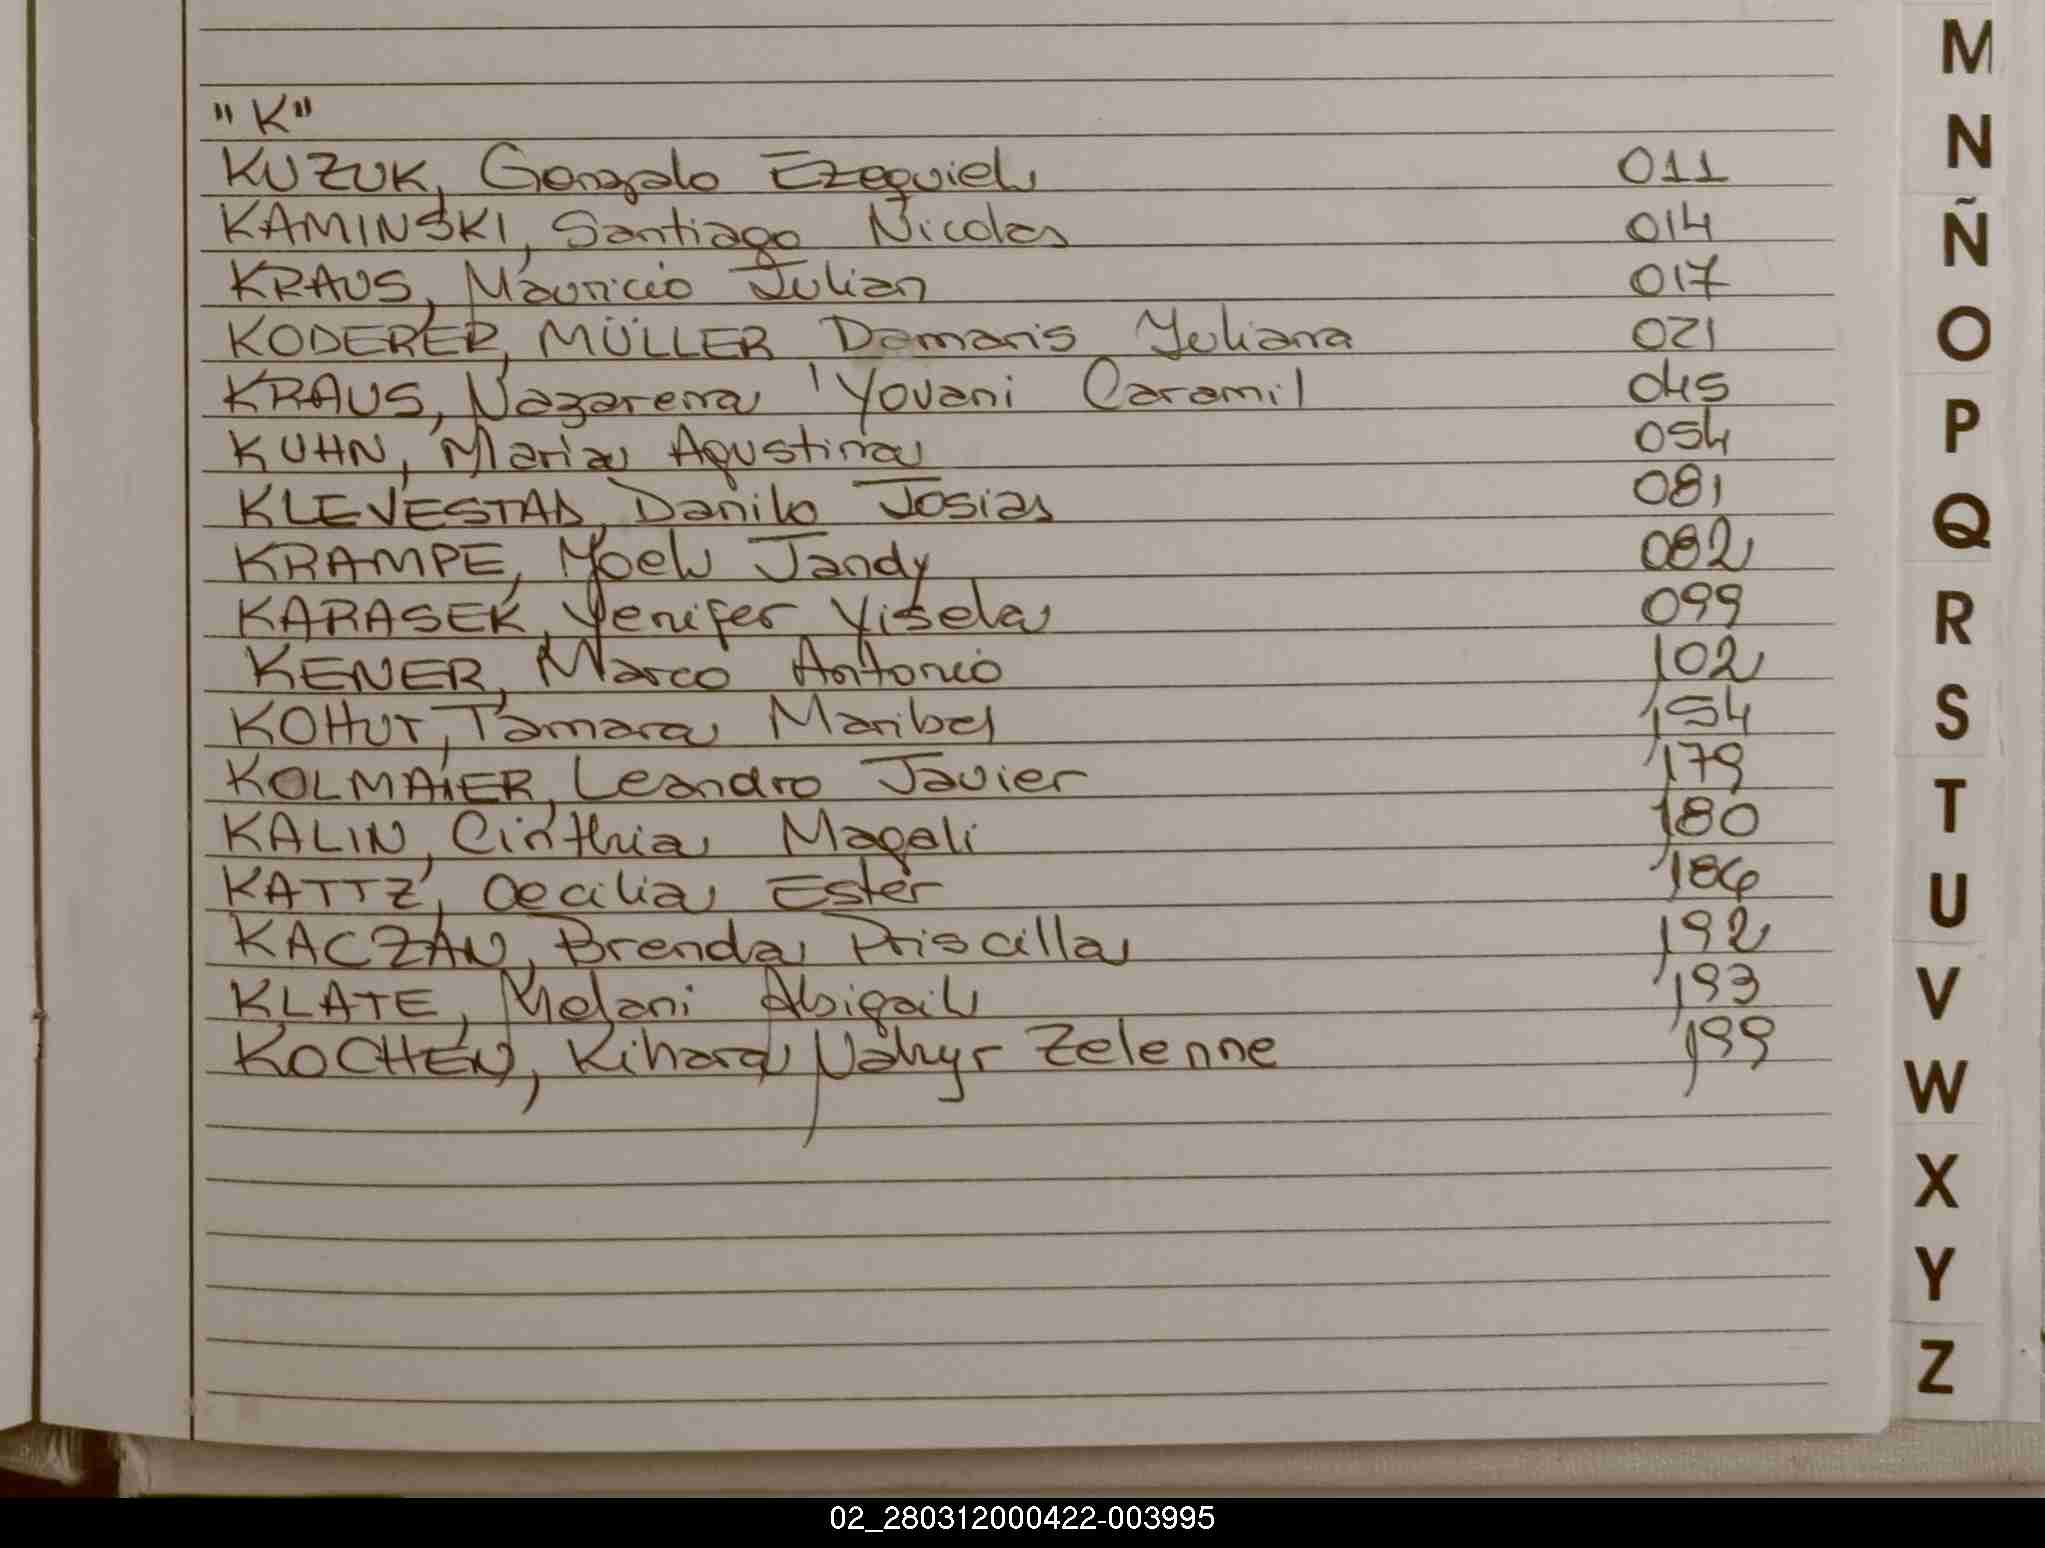 "K"
KUZUK, Gonzalo Ezequiel 011
KAMINSKI, Santiago Nicolas 014
KRAUS, Mauricio Julian 017
KODERER, MÜLLER Damaris Yuliana 021
KRAUS, Nazarena Yovani Caramil 045
KUHN, Maria Agustina 054
KLEVESTAD, Danilo Josias 081
KRAMPE, Yoel Jandy 082
KARASEK, Yenifer Yisela 099
KENER, Marco Antonio 102
KOHUT, Tamara Maribel 154
KOLMAIER, Leandro Javier 179
KALIN, Cinthia Magali 180
KATTZ, Cecilia Ester 186
KACZAN, Brenda Priscilla 192
KLATE, Melani Abigail 193
KOCHEN, Kihara Nahyr Zelenne 199
M
N
Ñ
O
P
Q
R
S
T
U
V
W
X
Y
Z
02_280312000422-003995